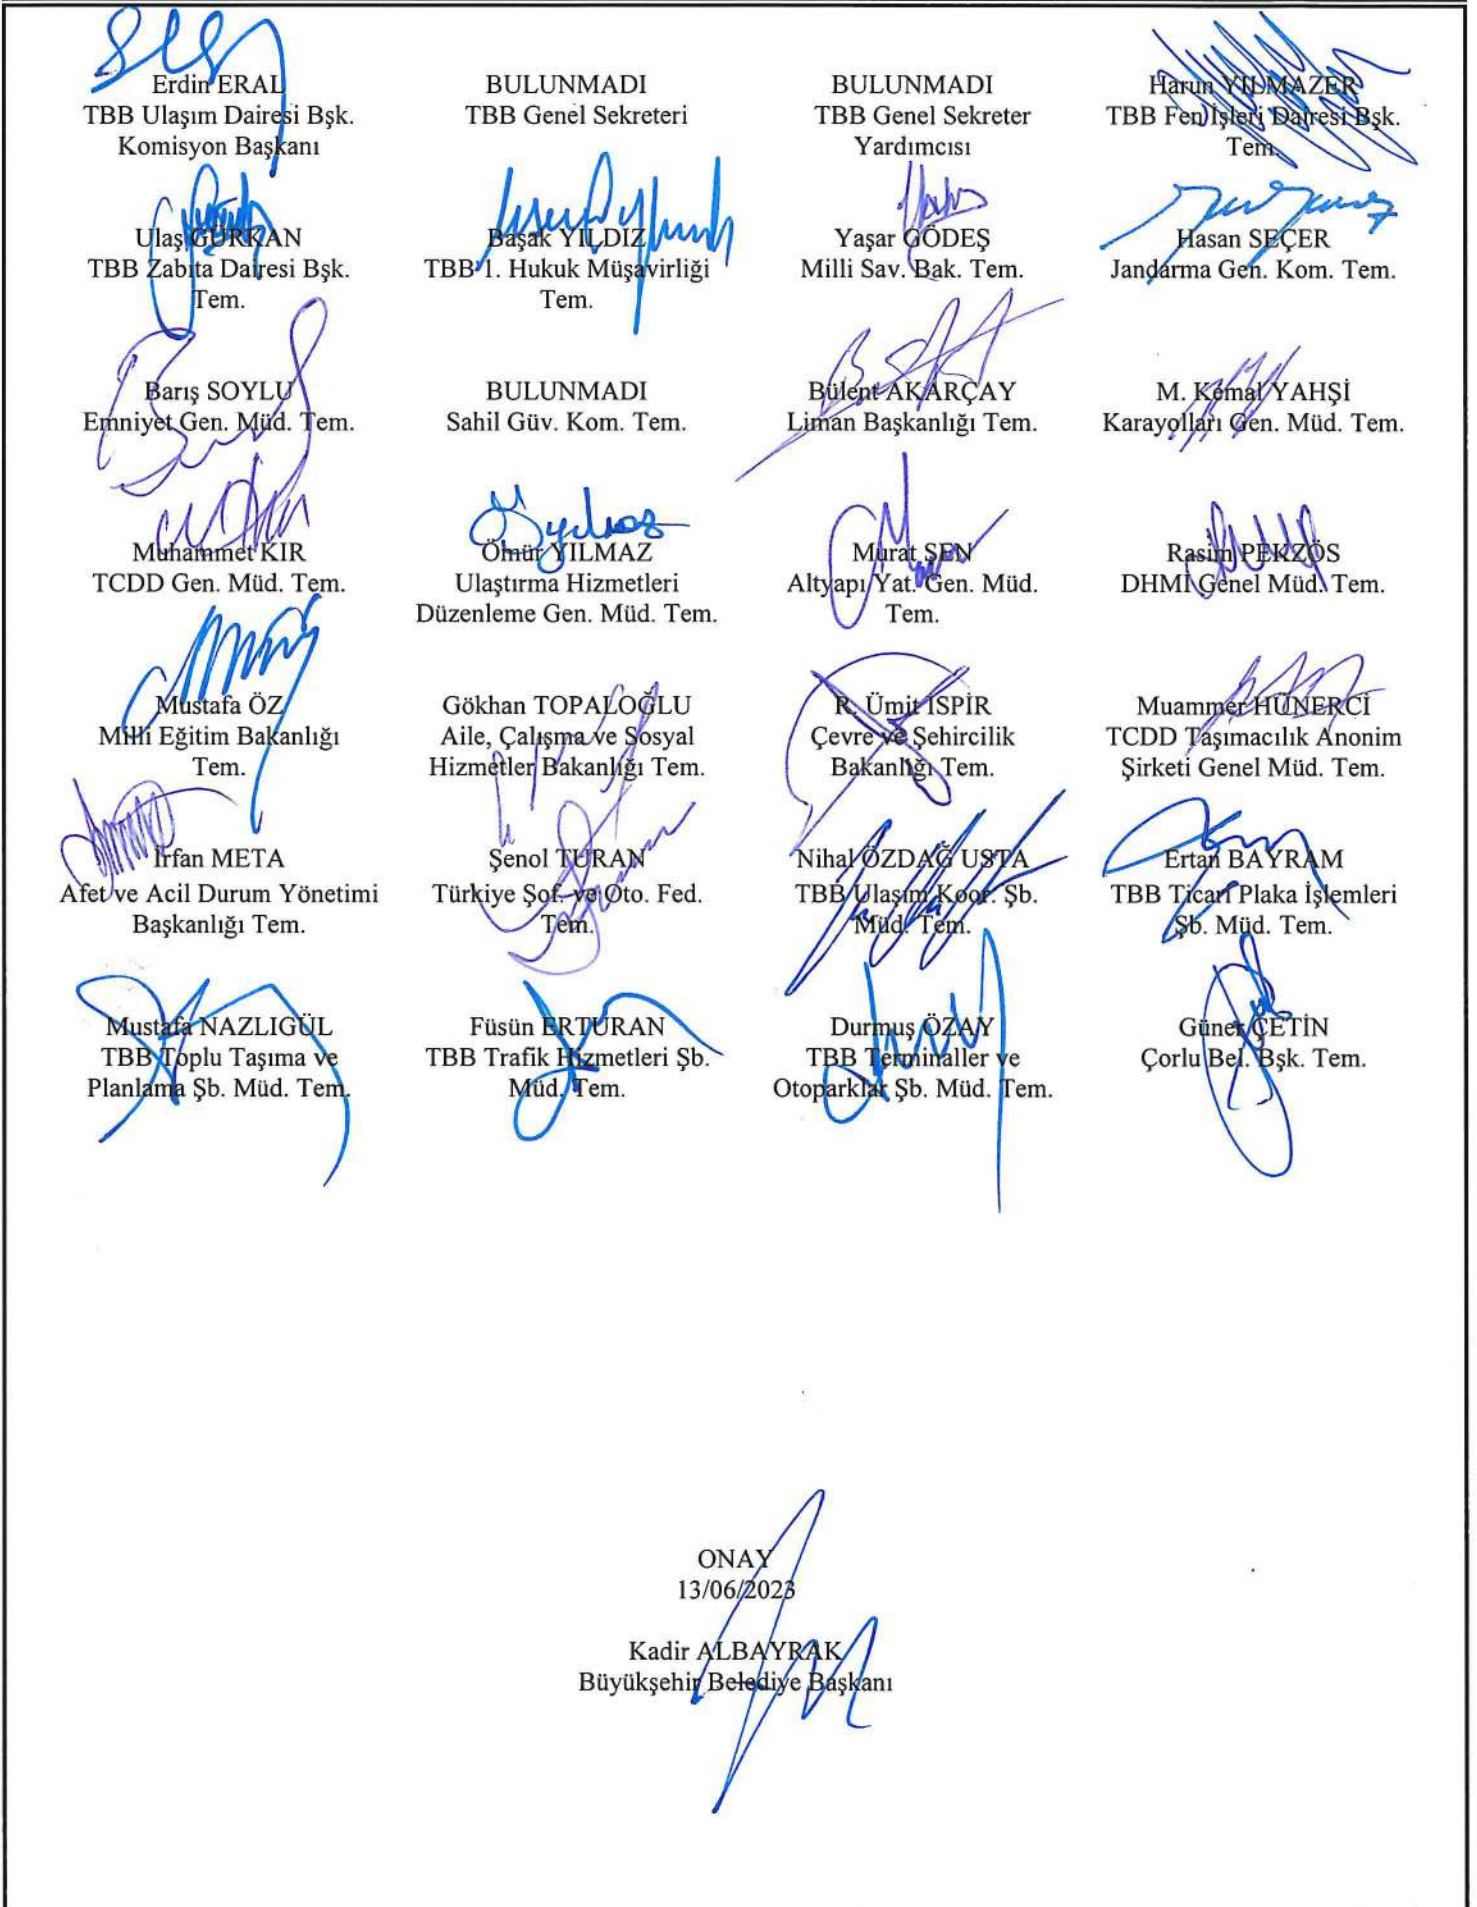 Erdin ERAL
TBB Ulaşım Dairesi Bşk.
Komisyon Başkanı
BULUNMADI
TBB Genel Sekreteri
BULUNMADI
TBB Genel Sekreter
Yardımcısı
Harun YILMAZER
TBB Fen İşleri Dairesi Bşk.
Tem.
Ulaş GÜRKAN
TBB Zabıta Dairesi Bşk.
Tem.
Başak YILDIZ
TBB 1. Hukuk Müşavirliği
Tem.
Yaşar GÖDEŞ
Milli Sav. Bak. Tem.
Hasan SEÇER
Jandarma Gen. Kom. Tem.
Barış SOYLU
Emniyet Gen. Müd. Tem.
BULUNMADI
Sahil Güv. Kom. Tem.
Bülent AKARÇAY
Liman Başkanlığı Tem.
M. Kemal YAHŞİ
Karayolları Gen. Müd. Tem.
Muhammet KIR
TCDD Gen. Müd. Tem.
Ömür YILMAZ
Ulaştırma Hizmetleri
Düzenleme Gen. Müd. Tem.
Murat ŞEN
Altyapı Yat. Gen. Müd.
Tem.
Rasim PEKZÖS
DHMİ Genel Müd. Tem.
Mustafa ÖZ
Milli Eğitim Bakanlığı
Tem.
Gökhan TOPALOĞLU
Aile, Çalışma ve Sosyal
Hizmetler Bakanlığı Tem.
R. Ümit İSPİR
Çevre ve Şehircilik
Bakanlığı Tem.
Muammer HÜNERCİ
TCDD Taşımacılık Anonim
Şirketi Genel Müd. Tem.
İrfan META
Afet ve Acil Durum Yönetimi
Başkanlığı Tem.
Şenol TURAN
Türkiye Şof. ve Oto. Fed.
Tem.
Nihal ÖZDAĞ USTA
TBB Ulaşım Koor. Şb.
Müd. Tem.
Ertan BAYRAM
TBB Ticari Plaka İşlemleri
Şb. Müd. Tem.
Mustafa NAZLIGÜL
TBB Toplu Taşıma ve
Planlama Şb. Müd. Tem.
Füsün ERTURAN
TBB Trafik Hizmetleri Şb.
Müd. Tem.
Durmuş ÖZAY
TBB Terminaller ve
Otoparklar Şb. Müd. Tem.
Güner ÇETİN
Çorlu Bel. Bşk. Tem.
ONAY
13/06/2023
Kadir ALBAYRAK
Büyükşehir Belediye Başkanı